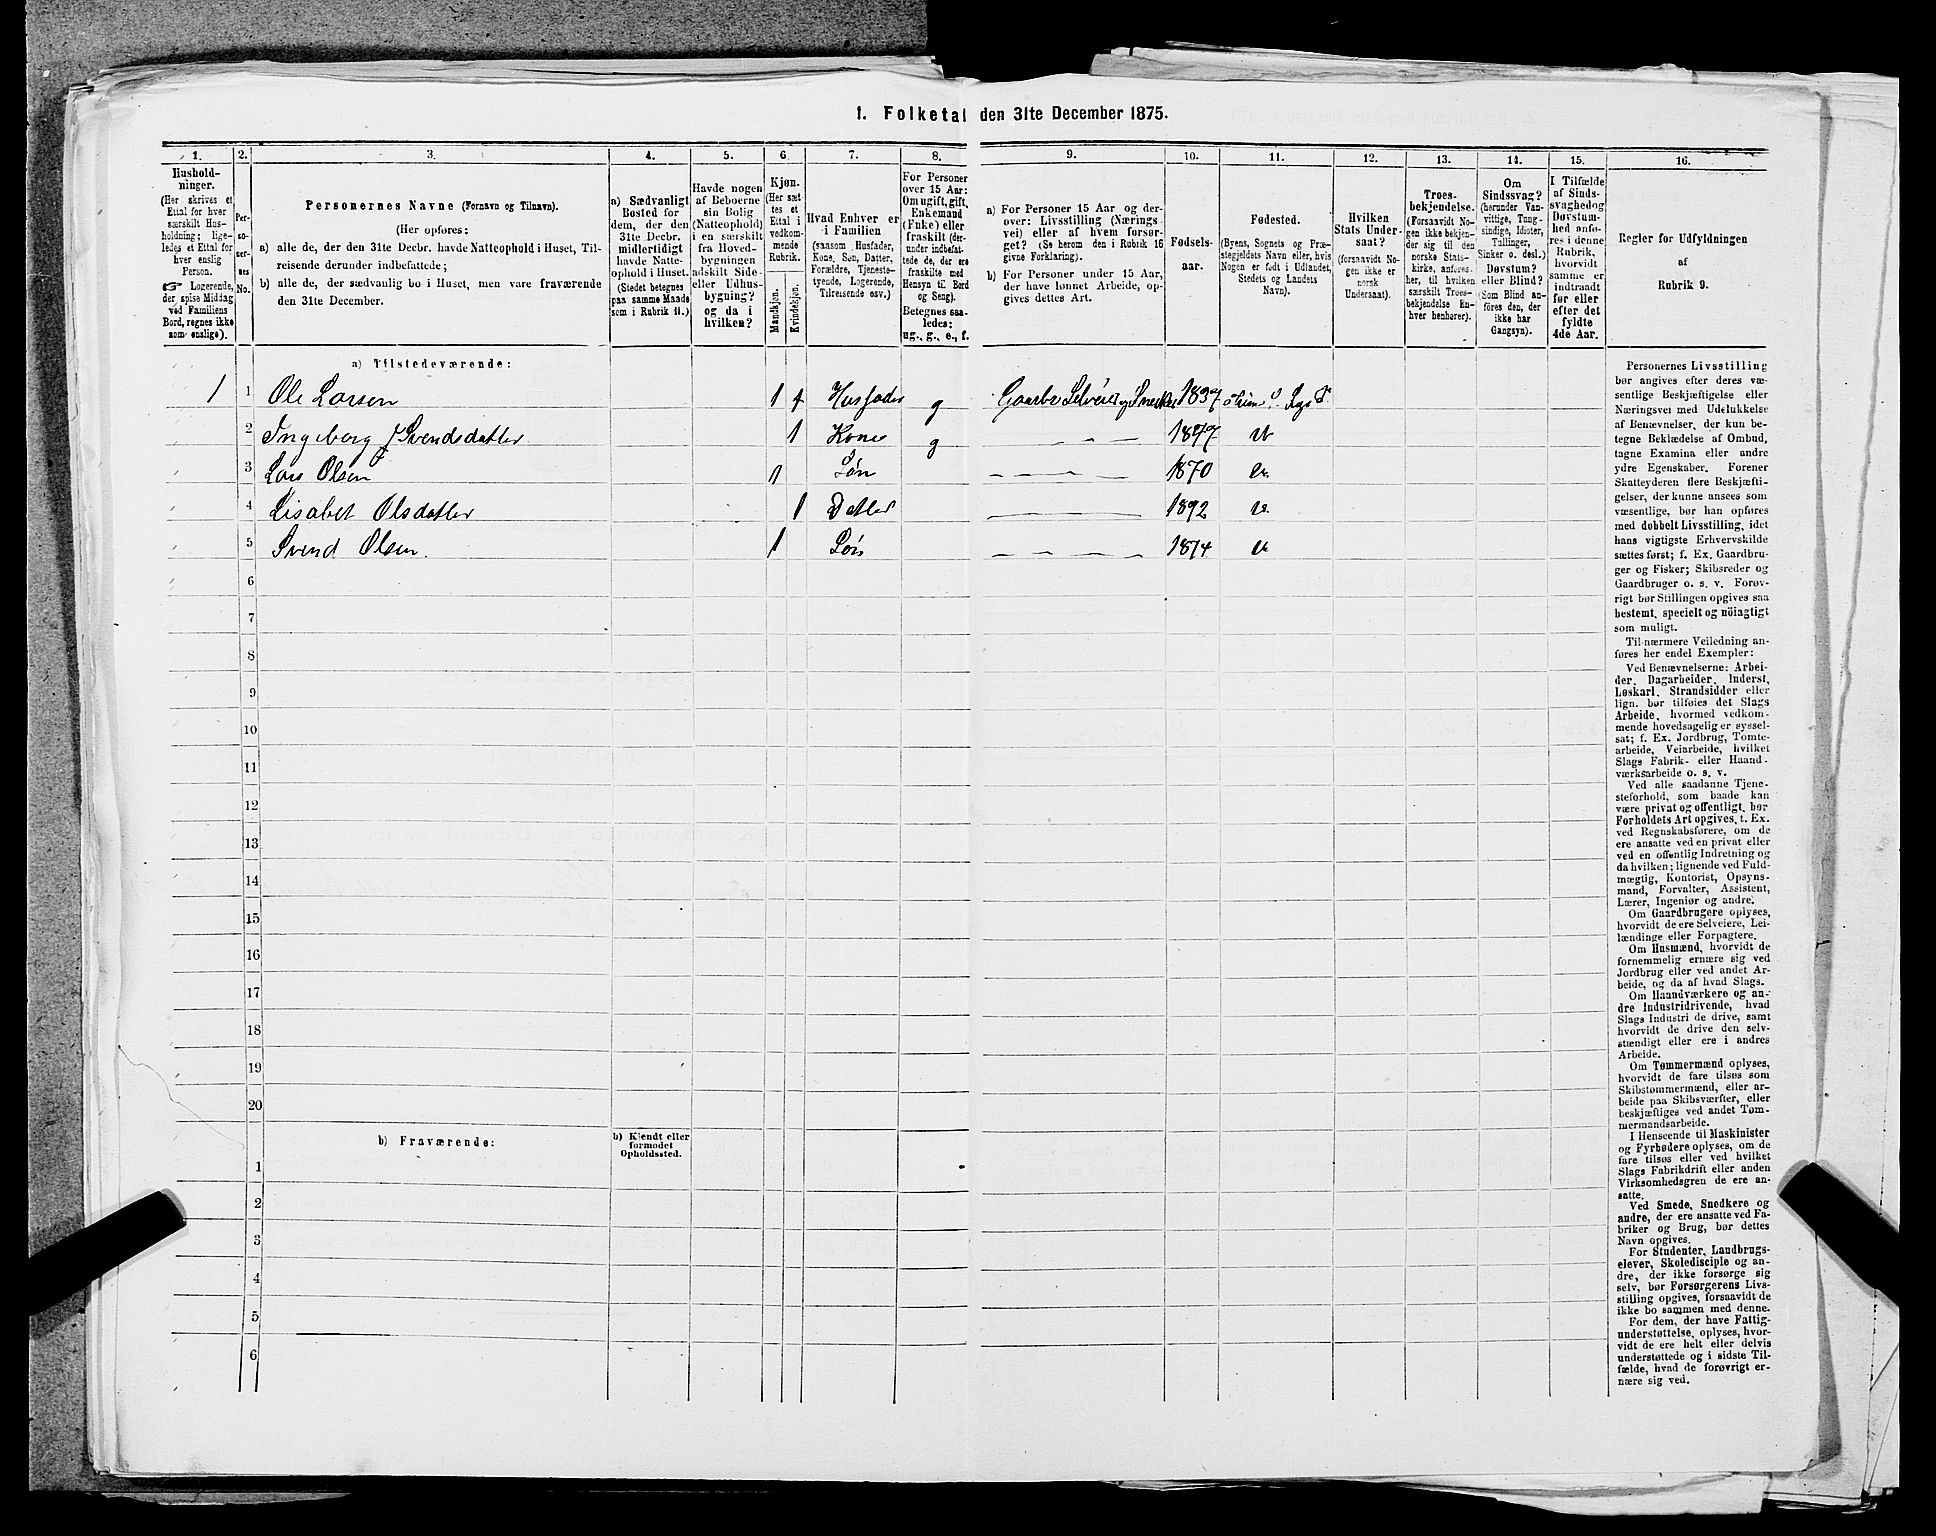 1. Folketal den 31te December 1875.
1.
Hushold-
ninger.
(Her skrives et
Ettal for hver
særskilt Hus-
holdning; lige-
ledes et Ettal for
hver enslig
Person.
☞ Logerende,
der spise Middag
ved Familiens
Bord, regnes ikke
som enslige).
2.
Per-
so-
ner-
nes
No.
3.
Personernes Navne (Fornavn og Tilnavn).
(Her opføres:
a) alle de, der den 31te Decbr. havde Natteophold i Huset, Til-
reisende derunder indbefattede;
b) alle de, der sædvanlig bo i Huset, men vare fraværende
den 31te December.
4.
a) Sædvanligt
Bosted for
dem, der den
31te Decbr.
midlertidigt
havde Natte-
ophold i Huset.
(Stedet betegnes
paa samme Maade
som i Rubrik 11.)
5.
Havde nogen
af Beboerne
sin Bolig
(Natteophold)
i en særskilt
fra Hoved-
bygningen
adskilt Side-
eller Udhus-
bygning?
og da i
hvilken?
6.
Kjøn.
(Her sæt-
tes et
Ettal i
vedkom-
mende
Rubrik.
Mandkjøn.
Kvindekjøn.
7.
Hvad Enhver er
i Familien
(saasom Husfader,
Kone, Søn, Datter,
Forældre, Tjeneste-
tyende, Logerende,
Tilreisende osv.)
8.
For Personer
over 15 Aar:
Om ugift, gift,
Enkemand
(Enke) eller
fraskilt (der-
under indbefat-
tede de, der ere
fraskilte med
Hensyn til Bord
og Seng).
Betegnes saa-
ledes:
ug., g., e., f.
9.
a) For Personer 15 Aar og der-
over: Livsstilling (Nærings-
vei) eller af hvem forsør-
get? (Se herom den i Rubrik 16
givne Forklaring).
b) For Personer under 15 Aar,
der have lønnet Arbeide, op-
gives dettes Art.
10.
Fødsels-
aar.
11.
Fødested.
(Byens, Sognets og Præ-
stegjeldets Navn eller, hvis
Nogen er født i Udlandet,
Stedets og Landets
Navn).
12.
Hvilken
Stats Under-
saat?
(forsaavidt No-
gen ikke er
norsk
Undersaat).
13.
Troes-
bekjendelse.
(Forsaavidt No-
gen ikke bekjen-
der sig til den
norske Stats-
kirke, anføres
her, til hvilken
særskilt Troes-
bekjendelse En-
hver henhører).
14.
Om
Sindssvag?
(herunder Van-
vittige, Tung-
sindige, Idioter,
Tullinger,
Sinker o. desl.)
Døvstum?
eller Blind?
(Som Blind an-
føres den, der
ikke har
Gangsyn).
15.
I Tilfælde
af Sinds-
svaghed og
Døvstum-
hed anfø-
res i denne
Rubrik,
hvorvidt
samme er
indtraadt
før eller
efter det
fyldte
4de Aar.
16.
Regler for Udfyldningen
af
Rubrik 9.
a) Tilstedeværende:
1 1 Ole Larsen 1 Husfader g Gaardbr Selveier og Snedker 1837
2 Ingeborg Svendsdatter 1 Kone g
3 Lars Olsen 1 Søn 1870
4 Lisabet Olsdatter 1 Datter
5 Svend Olsen. 1 Søn 1874
6
7
8
9
10
11
12
13
14
15
16
17
18
19
20
b) Fraværende:
b) Kjendt eller
formodet
Opholdssted.
1
2
3
4
5
6
Personernes Livsstilling
bør angives efter deres væ-
sentlige Beskjæftigelse eller
Næringsvei med Udelukkelse
af Benævnelser, der kun be-
tegne Beklædelse af Ombud,
tagne Examina eller andre
ydre Egenskaber. Forener
Skatteyderen flere Beskjæfti-
gelser, der kunne ansees som
væsentlige, bør han opføres
med dobbelt Livsstilling, idet
hans vigtigste Erhvervskilde
sættes først; f. Ex. Gaardbru-
ger og Fisker; Skibsreder og
Gaardbruger o. s. v. Forøv-
rigt bør Stillingen opgives saa
bestemt, specielt og nöiagtigt
som muligt.
Til nærmere Veiledning an-
føres her endel Exempler:
Ved Benævnelserne: Arbei-
der, Dagarbeider, Inderst,
Løskarl, Strandsidder eller
lign. bør tilføies det Slags
Arbeide, hvormed vedkom-
mende hovedsagelig er syssel-
sat; f. Ex. Jordbrug, Tomte-
arbeide, Veiarbeide, hvilket
Slags Fabrik- eller Haand-
værksarbeide o. s. v.
Ved alle saadanne Tjene-
steforhold, som baade kan
være privat og offentligt, bør
Forholdets Art opgives, t. Ex.
ved Regnskabsførere, om de
ere ansatte ved en privat eller
ved en offentlig Indretning og
da hvilken; lignende ved Fuld-
mægtig, Kontorist, Opsyns-
mand, Forvalter, Assistent,
Lærer, Ingeniør og andre.
Om Gaardbrugere oplyses,
hvorvidt de ere Selveiere, Lei-
lændinge eller Forpagtere.
Om Husmænd, hvorvidt de
fornemmelig ernære sig ved
Jordbrug eller ved andet Ar-
beide, og da af hvad Slags.
Om Haandværkere og an-
dre Industridrivende, hvad
Slags Industri de drive, samt
hvorvidt de drive den selv-
stændigt eller ere i andres
Arbeide.
Om Tømmermænd oplyses,
hvorvidt de fare tilsøs som
Skibstømmermænd, eller ar-
beide paa Skibsværfter, eller
beskjæftiges ved andet Tøm-
mermandsarbeide.
I Henseende til Maskinister
og Fyrbødere oplyses, om de
fare tilsøs eller ved hvilket
Slags Fabrikdrift eller anden
Virksomhedsgren de ere an-
satte.
Ved Smede, Snedkere og
andre, der ere ansatte ved Fa-
briker og Brug, bør dettes
Navn opgives.
For Studenter, Landbrugs-
elever, Skoledisciple og an-
dre, der ikke forsørge sig
selv, bør Forsørgerens Livs-
stilling opgives, forsaavidt de
ikke bo sammen med denne.
For dem, der have Fattig-
understøttelse, oplyses, hvor-
vidt de ere helt eller delvis
understøttede og i sidste Til-
fælde, hvad de forøvrigt er-
nære sig ved.